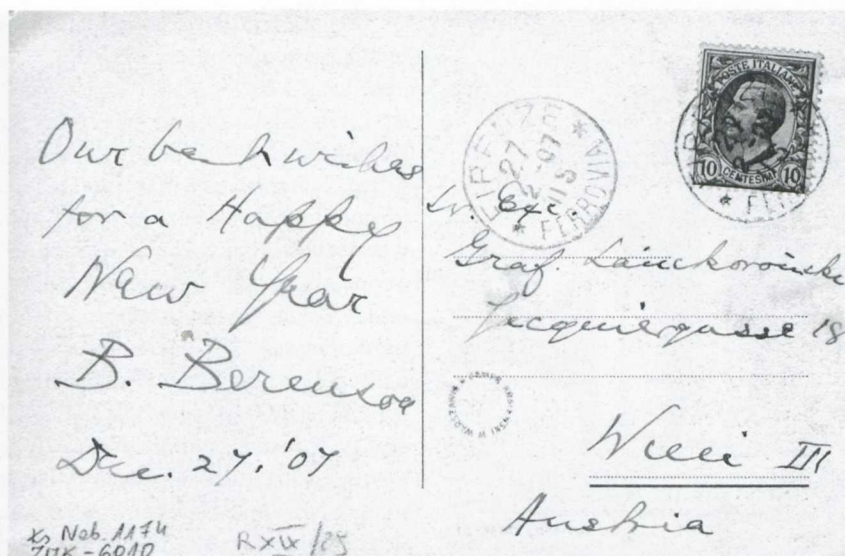 Our best wishes
for a Happy
New Year
B. Berenson
Dec. 27, '07
Ks. Nab. 1174
RXIX/25
FIRENZE
27
12-07
11S
* FERROVIA *
POSTE ITALIANE
10 CENTESIMI 10
* FER
Sr. Exc.
Graf. Lanckoroński
Jacquingasse 18
Wien III
Austria